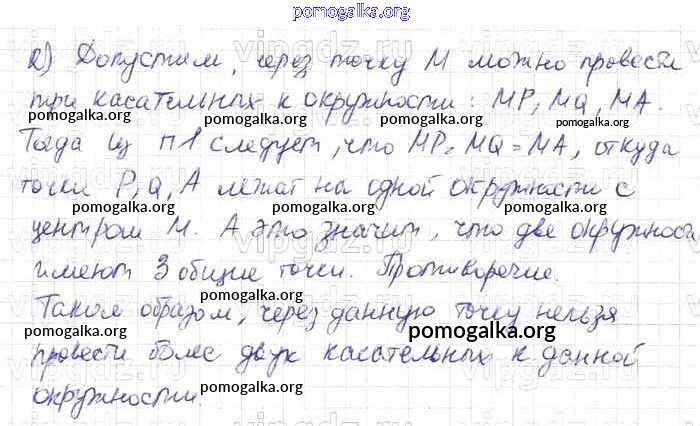 pomogalka.org
2) Допустим, через точку М можно провести
три касательных к окружности: MP, MQ, MA.
pomogalka.org pomogalka.org pomogalka.org
Тогда из п1 следует, что MP = MQ = MA, откуда
точки P, Q, A лежат на одной окружности с
pomogalka.org pomogalka.org pomogalka.org
центром М. А это значит, что две окружности
имеют 3 общие точки. Противоречие.
pomogalka.org pomogalka.org
Таким образом, через данную точку нельзя
pomogalka.org pomogalka.org
провести более двух касательных к данной
pomogalka.org pomogalka.org
окружности.